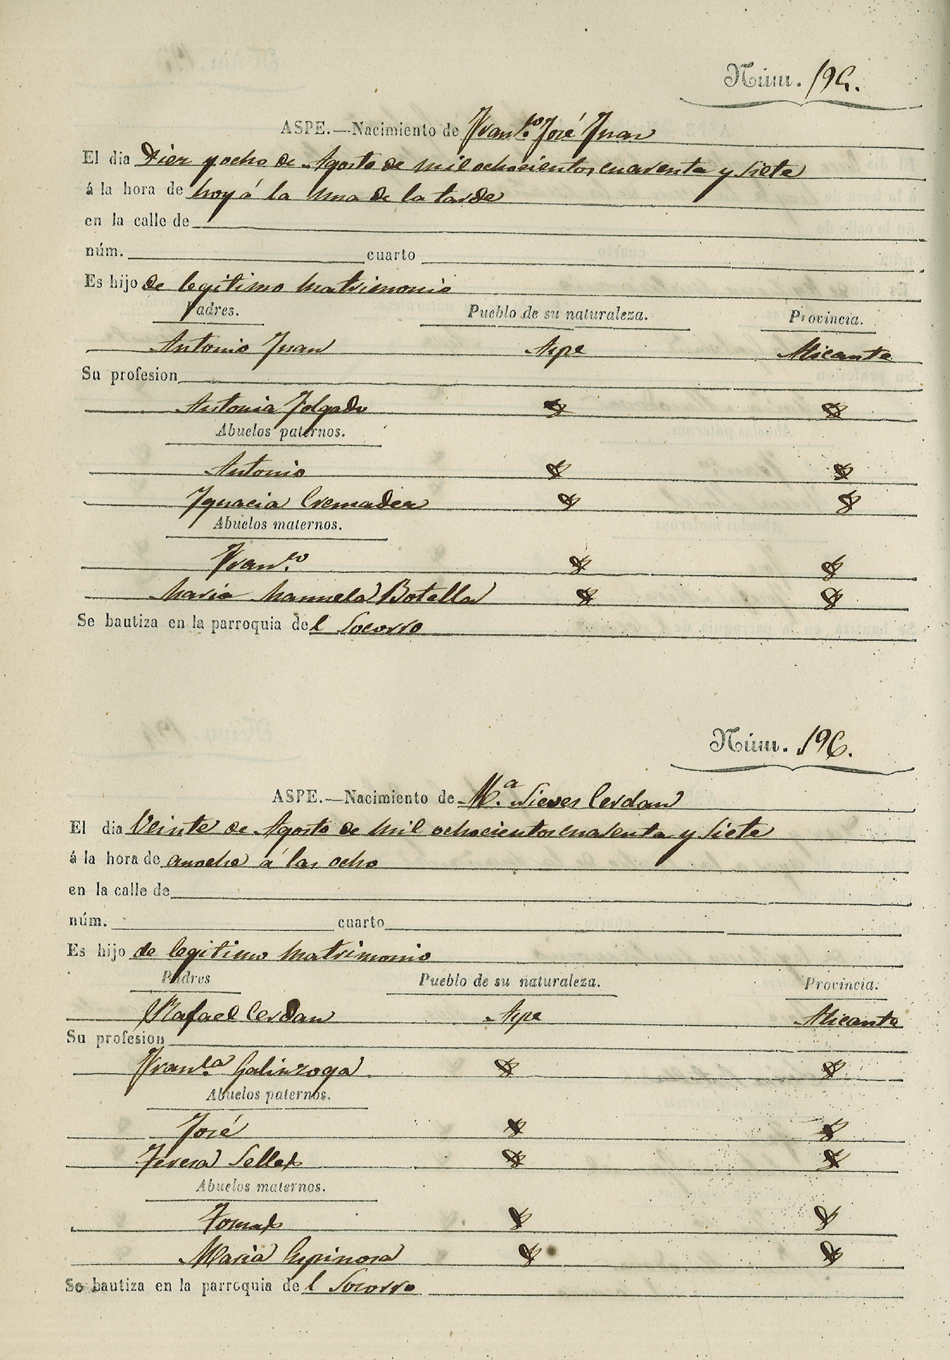 Núm. 195.
ASPE.—Nacimiento de Fran.co José Juan
El dia Diez y ocho de Agosto de mil ochocientos cuarenta y siete
á la hora de hoy á la una de la tarde
en la calle de
núm. cuarto
Es hijo de legitimo matrimonio
Padres. Pueblo de su naturaleza. Provincia.
Antonio Juan Aspe Alicante
Su profesion
Antonia Folgado
Abuelos paternos.
Antonio
Ignacia Cremades
Abuelos maternos.
Fran.co
Maria Manuela Botella
Se bautiza en la parroquia del Socorro
Núm. 196.
ASPE.—Nacimiento de M.a Nieves Cerdan
El dia Veinte de Agosto de mil ochocientos cuarenta y siete
á la hora de anoche á las ocho
en la calle de
núm. cuarto
Es hijo de legitimo matrimonio
Padres Pueblo de su naturaleza. Provincia.
Rafael Cerdan Aspe Alicante
Su profesion
Fran.ca Galinzoga
Abuelos paternos.
José
Teresa Selles
Abuelos maternos.
Tomas
Maria Espinosa
Se bautiza en la parroquia del Socorro